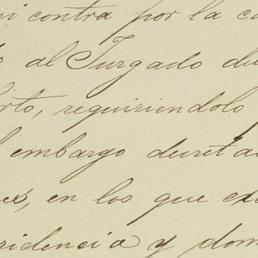 mi contra por la ca
al Jurgado de
rto, requiriendolo
embargo decreta
es, en los que ex
ridencia y dom